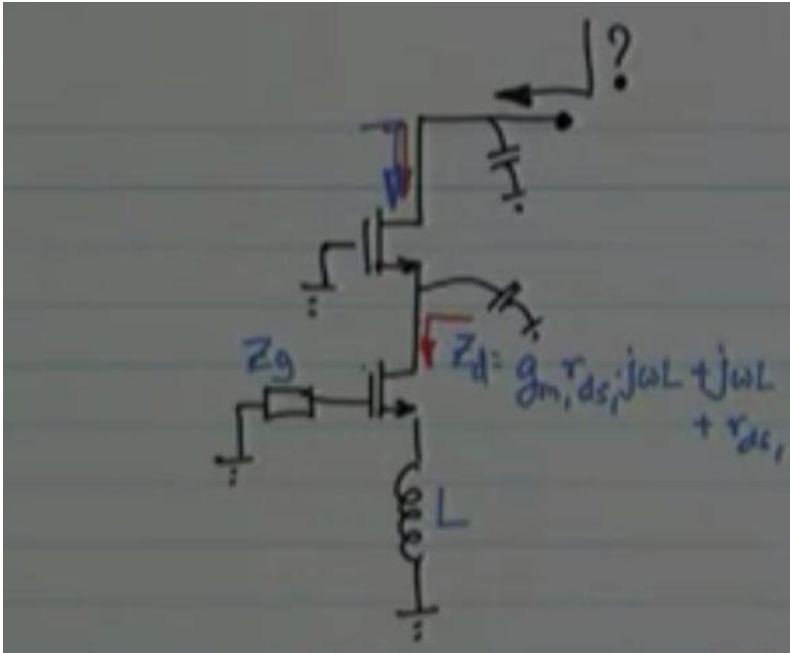 ?
Zg
Zd = gm1 rds1 · jωL + jωL
+ rds1
L